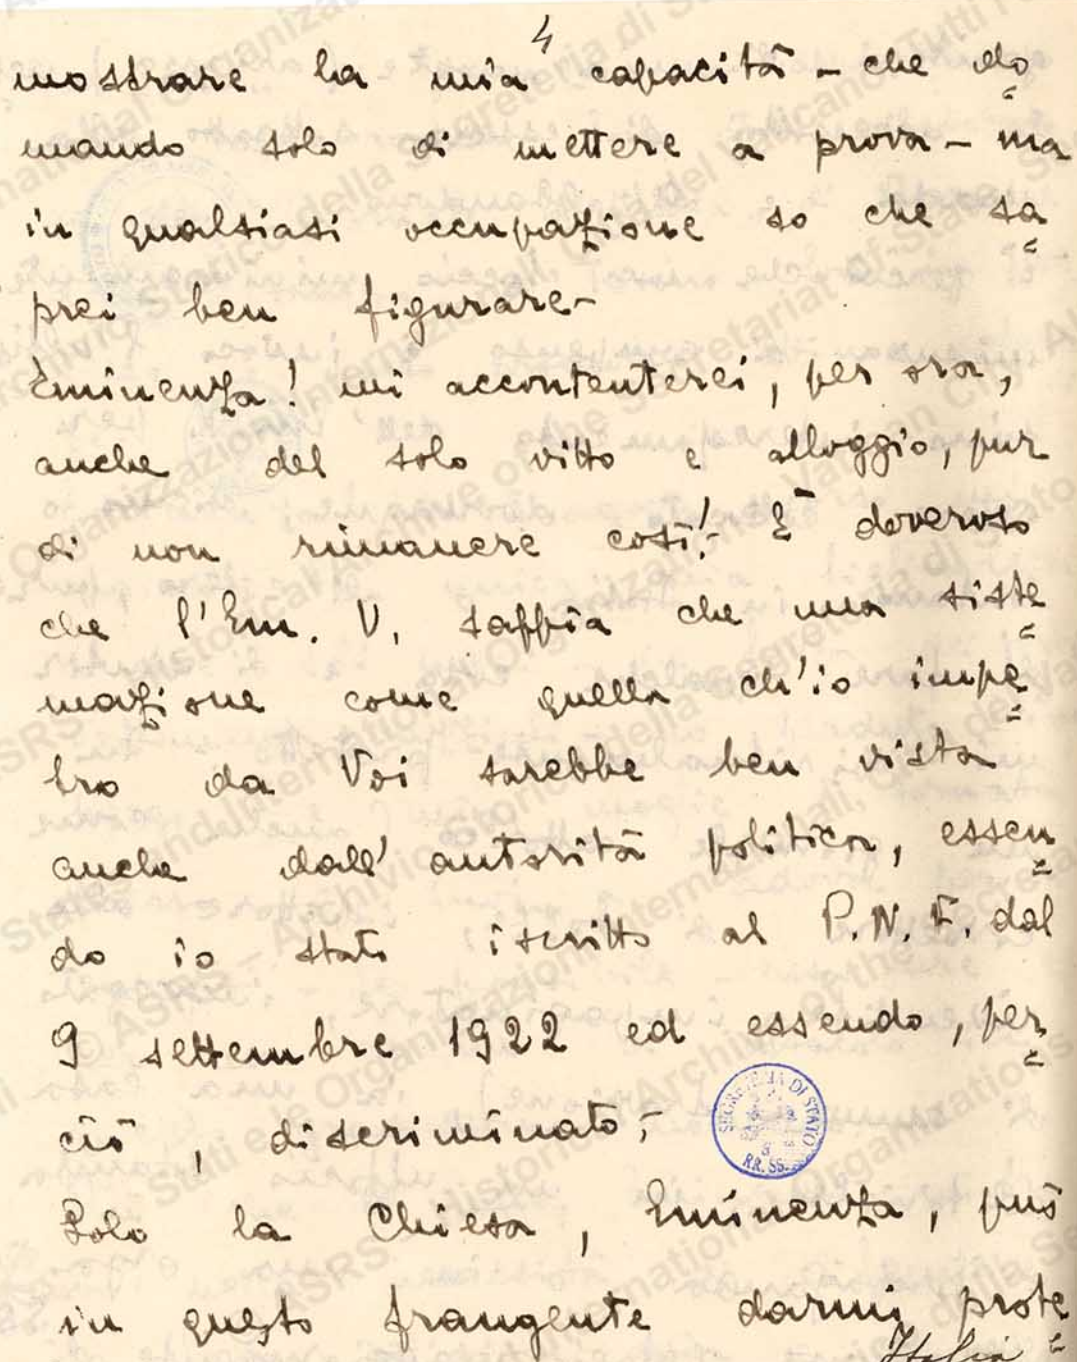 4
mostrare la mia capacità - che do=
mando solo di mettere a prova - ma
in qualsiasi occupazione so che sa=
prei ben figurare -
Eminenza! mi accontenterei, per ora,
anche del solo vitto e alloggio, pur
di non rimanere così! - È doveroso
che l'Em. V. sappia che una siste=
mazione come quella ch'io impe=
tro da Voi sarebbe ben vista
anche dall'autorità politica, essen=
do io stato iscritto al P.N.F. dal
9 settembre 1922 ed essendo, per=
ciò, discriminato; -
SEGRETERIA DI STATO
RR. SS.
Solo la Chiesa, Eminenza, può
in questo frangente darmi prote=
Italia